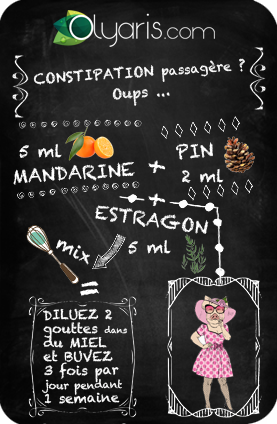 Olyaris.com
CONSTIPATION passagère ?
Oups ...
5 ml
MANDARINE
+
PIN
2 ml
+
ESTRAGON
5 ml
mix
=
DILUEZ 2
gouttes dans
du MIEL
et BUVEZ
3 fois par
jour pendant
1 semaine